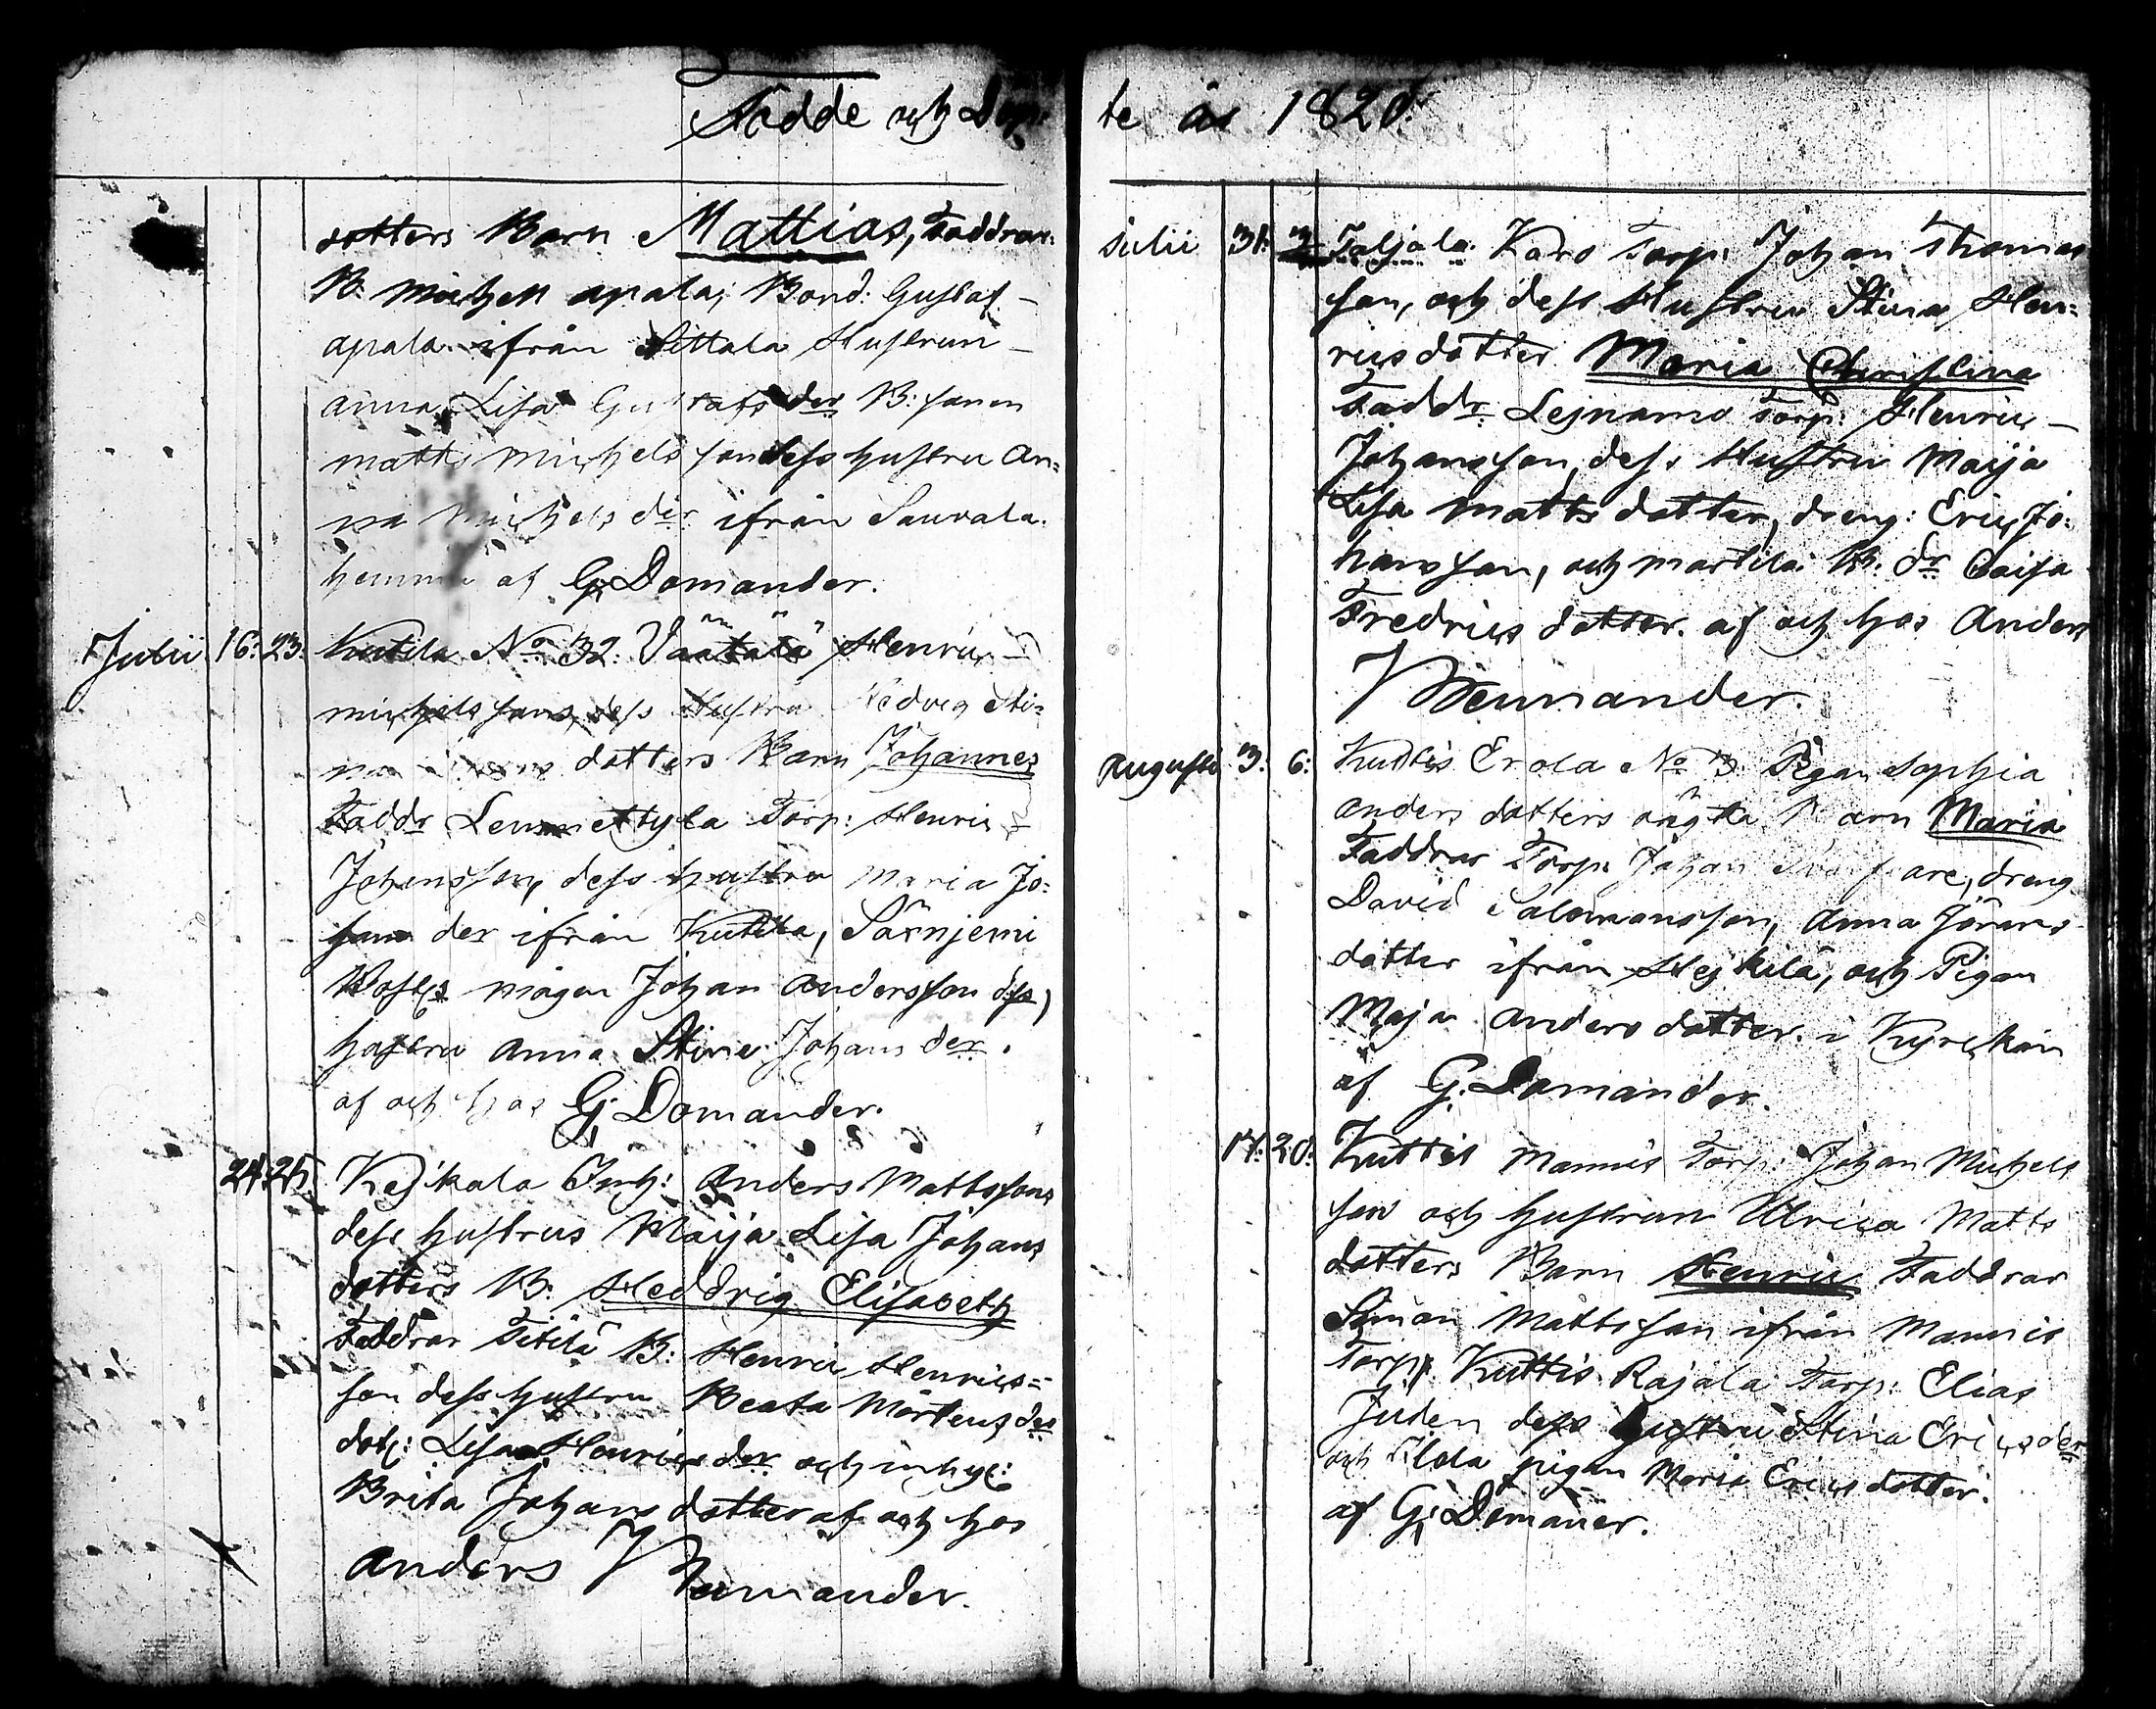 Födde och Döp:
te år 1820.
dotters Barn Mattias, Faddrar:
B. Michell apala; Bond: Gustaf
apala ifrån Sittala Hustrun
anna Lisa Gustafs der B: sonen
matts Michels son dess hustru An=
na Michels der ifrån Sauvala.
hemma af G. Domander.
Julii 16: 23: Kutila No 32. Väätälä Henric
michelssons, dess Hustru Hedvig Sti=
na dotters Barn Johannes
Faddr Lemmettyla Torp: Henric
Johansson, dess hustru Maria Jo=
hans der ifrån Kuttila, Särnjemi
mågen Johan Andersson dess
hustru Anna Stina Johans der.
af och hos G. Domander.
24. 25. Kejkala Inh: Anders Mattssons
dess hustrus Maija Lisa Johans
dotters B: Heddvig Elisabeth
Faddrar Titilä B: Henric Henrics=
son dess hustru Beata Mårtens der
dot: Lisa Henrics der och inhys:
Brita Johans dotter af och hos
Anders Wenmander.
Julii 31: Taljala Karo Torp: Johan Thomas
son, och dess Hustru Stina Hen=
rics dotter Maria Christina
Faddr: Lejnamo Torp: Henric
Johansson, dess Hustru Maija
Lisa Matts dotter, dreng: Eric Jo=
hansson, och martila B. dr Caisa
Fredrics dotter. af och hos Anders
Wenmander.
Augusti 3: 6: Kuttis Erola No 3 Pigan Sophia
Anders dotters oägta Barn Maria
Faddrar Torp: Johan are, dreng
David Salomonsson, Anna Jörans
dotter ifrån Hejkilä, och Pigan
Maja Anders dotter. i Kyrckan
af G. Domander.
17: 20: Kuttis Mannis Torp: Johan Michels
son och hustrun Ulrica Matts
dotters Barn Henric Faddrar
Simon Mattsson ifrån Mannis
Torp. Kuttis Rajala Torp: Elias
Juden dess hustru Stina Erics der
och pigan Maria Erics dotter.
af G. Domaner.